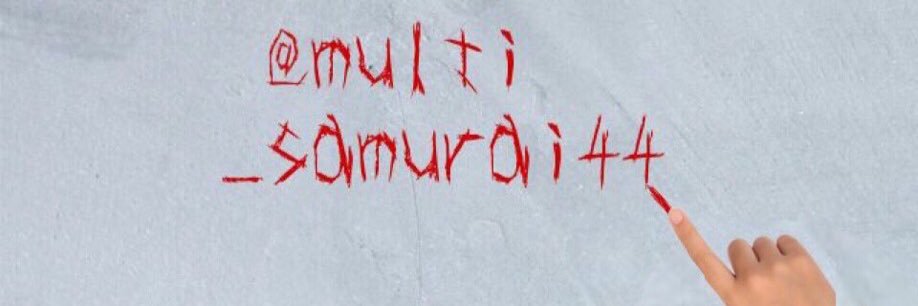 @multi
_samurai44